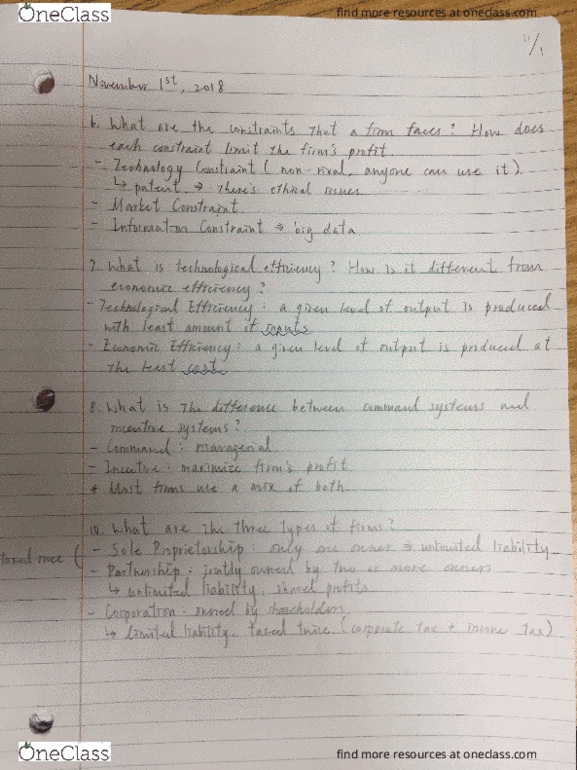 OneClass
find more resources at oneclass.com
11/1
November 1st, 2018
6. What are the constraints that a firm faces? How does
each constraint limit the firm's profit
- Technology Constraint (non-rival, anyone can use it).
↳ patent. → There's ethical issues
- Market Constraint
- Information Constraint → big data
7. What is technological efficiency? How is it different from
economic efficiency?
- Technological Efficiency: a given level of output is produced
with least amount of inputs
- Economic Efficiency: a given level of output is produced at
the least cost
8. What is the difference between command systems and
incentive systems?
- Command: managerial
- Incentive: maximize firm's profit
* Most firms use a mix of both
10. What are the three types of firms?
taxed once ( - Sole Proprietorship: only one owner ⇒ unlimited liability
- Partnership: jointly owned by two or more owners
↳ unlimited liability, shared profits
- Corporation: owned by shareholders
↳ limited liability. Taxed twice (corporate tax + income tax)
OneClass
find more resources at oneclass.com